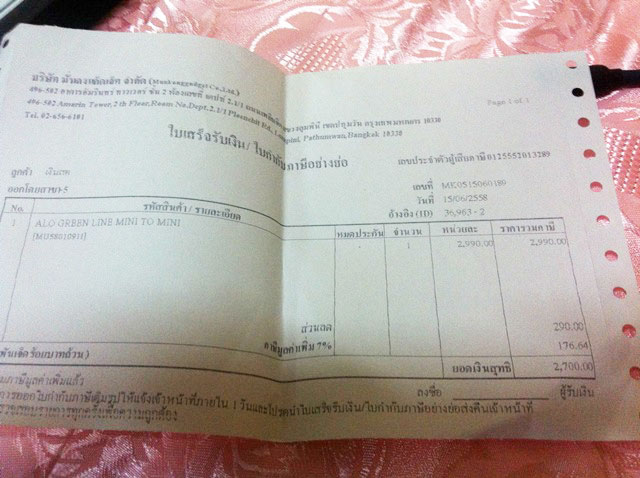 บริษัท มั่นคงวงษ์เจริญ จำกัด
496-502 อาคารอัมรินทร์ ทาวเวอร์ ชั้น 2 ห้องเลขที่ เดปท์ 2.1/1 ลุมพินี เขตปทุมวัน กรุงเทพมหานคร 10330
496-502 Amarin Tower, 2 th Floor, Room No, Dept. 2.1/1 Ploenchit Rd., Lumpini, Pathumwan, Bangkok 10330
Tel. 02-656-6181
Page 1 of 1
ใบเสร็จรับเงิน / ใบกำกับภาษีอย่างย่อ
เลขประจำตัวผู้เสียภาษี 0125552013289
ลูกค้า เงินสด
เลขที่ ME0515060189
ออกโดยสาขา-5
วันที่ 15/06/2558
อ้างอิง (ID) 36,963 - 2
No. รหัสสินค้า / รายละเอียด หมดประกัน จำนวน หน่วยละ ราคารวมภาษี
1 ALO GREEN LINE MINI TO MINI - 1 2,990.00 2,990.00
ส่วนลด 290.00
ภาษีมูลค่าเพิ่ม 7% 176.64
พันเจ็ดร้อยบาทถ้วน ) ยอดเงินสุทธิ 2,700.00
มภาษีมูลค่าเพิ่มแล้ว
ลงชื่อ ผู้รับเงิน
การออกใบกำกับภาษีเต็มรูปให้แจ้งเจ้าหน้าที่ภายใน 1 วันและโปรดนำใบเสร็จรับเงิน/ใบกำกับภาษีอย่างย่อส่งคืนเจ้าหน้าที่
รวจสอบรายการทุกครั้งเพื่อความถูกต้อง